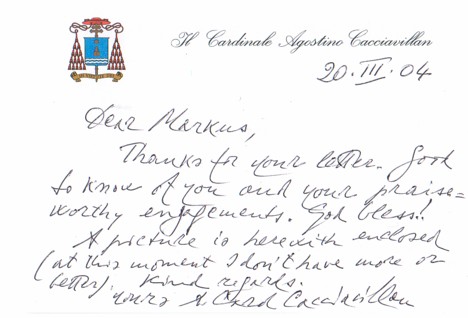 Il Cardinale Agostino Cacciavillan
20.III.04
Dear Markus,
Thanks for your letter. Good
to know of you and your praise=
worthy engagements. God bless!
A picture is herewith enclosed
(at this moment I don't have more or
better). Kind regards.
Yours A. Card. Cacciavillan